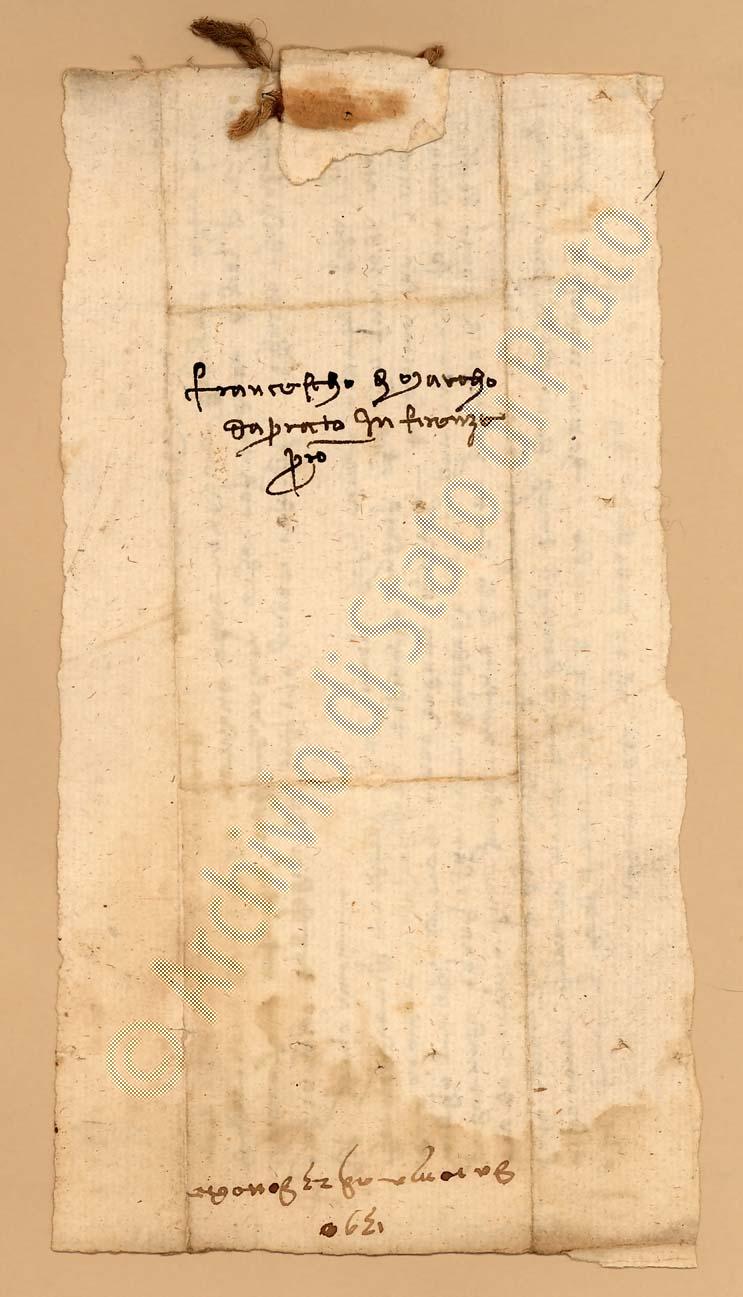 francescho di marcho
da prato in firenze
pro
da roma a di
1390
© Archivio di Stato di Prato